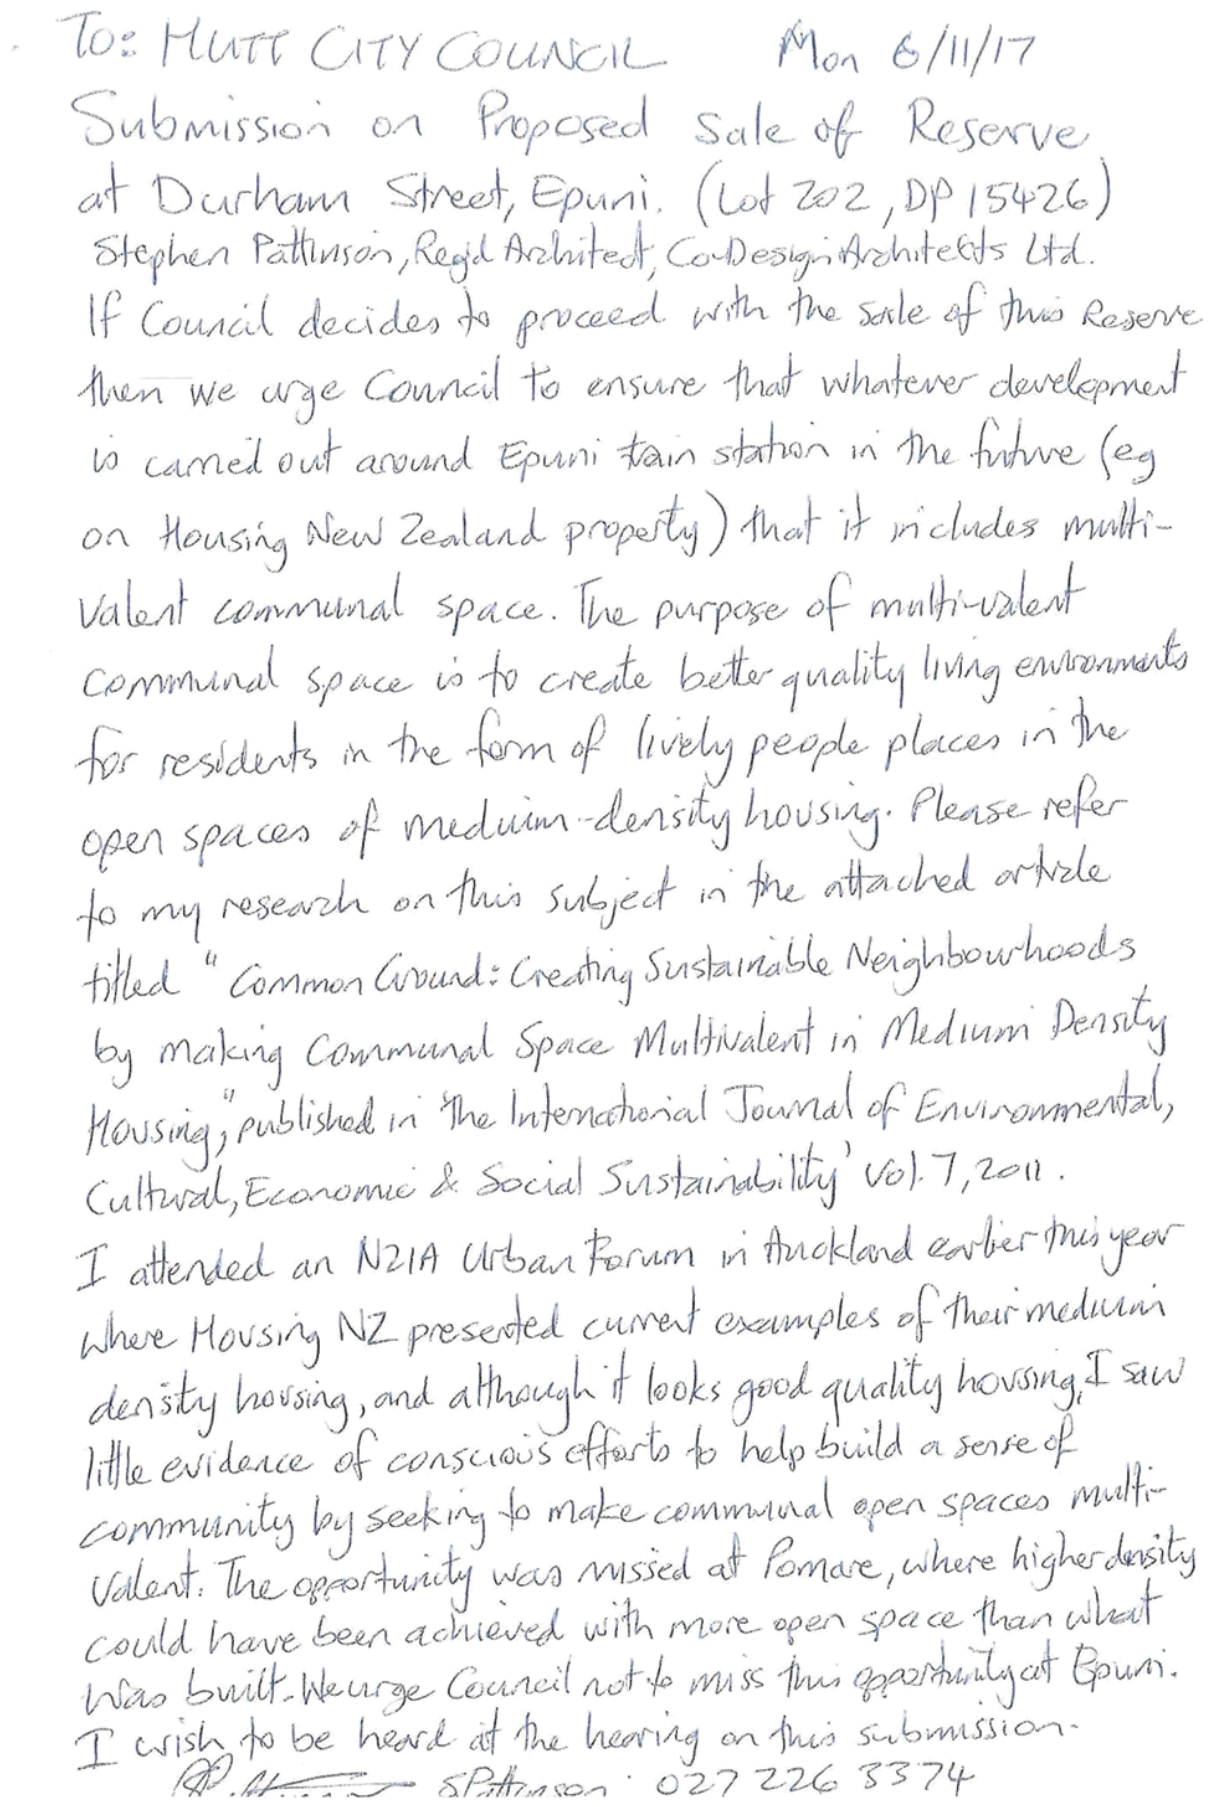 To: HUTT CITY COUNCIL Mon 6/11/17
Submission on Proposed Sale of Reserve
at Durham Street, Epuni. (Lot 202, DP 15426)
Stephen Pattinson, Reg'd Architect, Co-Design Architects Ltd.
If Council decides to proceed with the sale of this Reserve
then we urge Council to ensure that whatever development
is carried out around Epuni train station in the future (eg
on Housing New Zealand property) that it includes multi-
valent communal space. The purpose of multi-valent
communal space is to create better quality living environments
for residents in the form of lively people places in the
open spaces of medium-density housing. Please refer
to my research on this subject in the attached article
titled "Common Ground: Creating Sustainable Neighbourhoods
by making Communal Space Multivalent in Medium Density
Housing," published in 'The International Journal of Environmental,
Cultural, Economic & Social Sustainability' Vol. 7, 2011.
I attended an NZIA Urban Forum in Auckland earlier this year
where Housing NZ presented current examples of their medium
density housing, and although it looks good quality housing, I saw
little evidence of conscious efforts to help build a sense of
community by seeking to make communal open spaces multi-
valent. The opportunity was missed at Pomare, where higher density
could have been achieved with more open space than what
was built. We urge Council not to miss this opportunity at Epuni.
I wish to be heard at the hearing on this submission.
SPattinson 027 226 3374